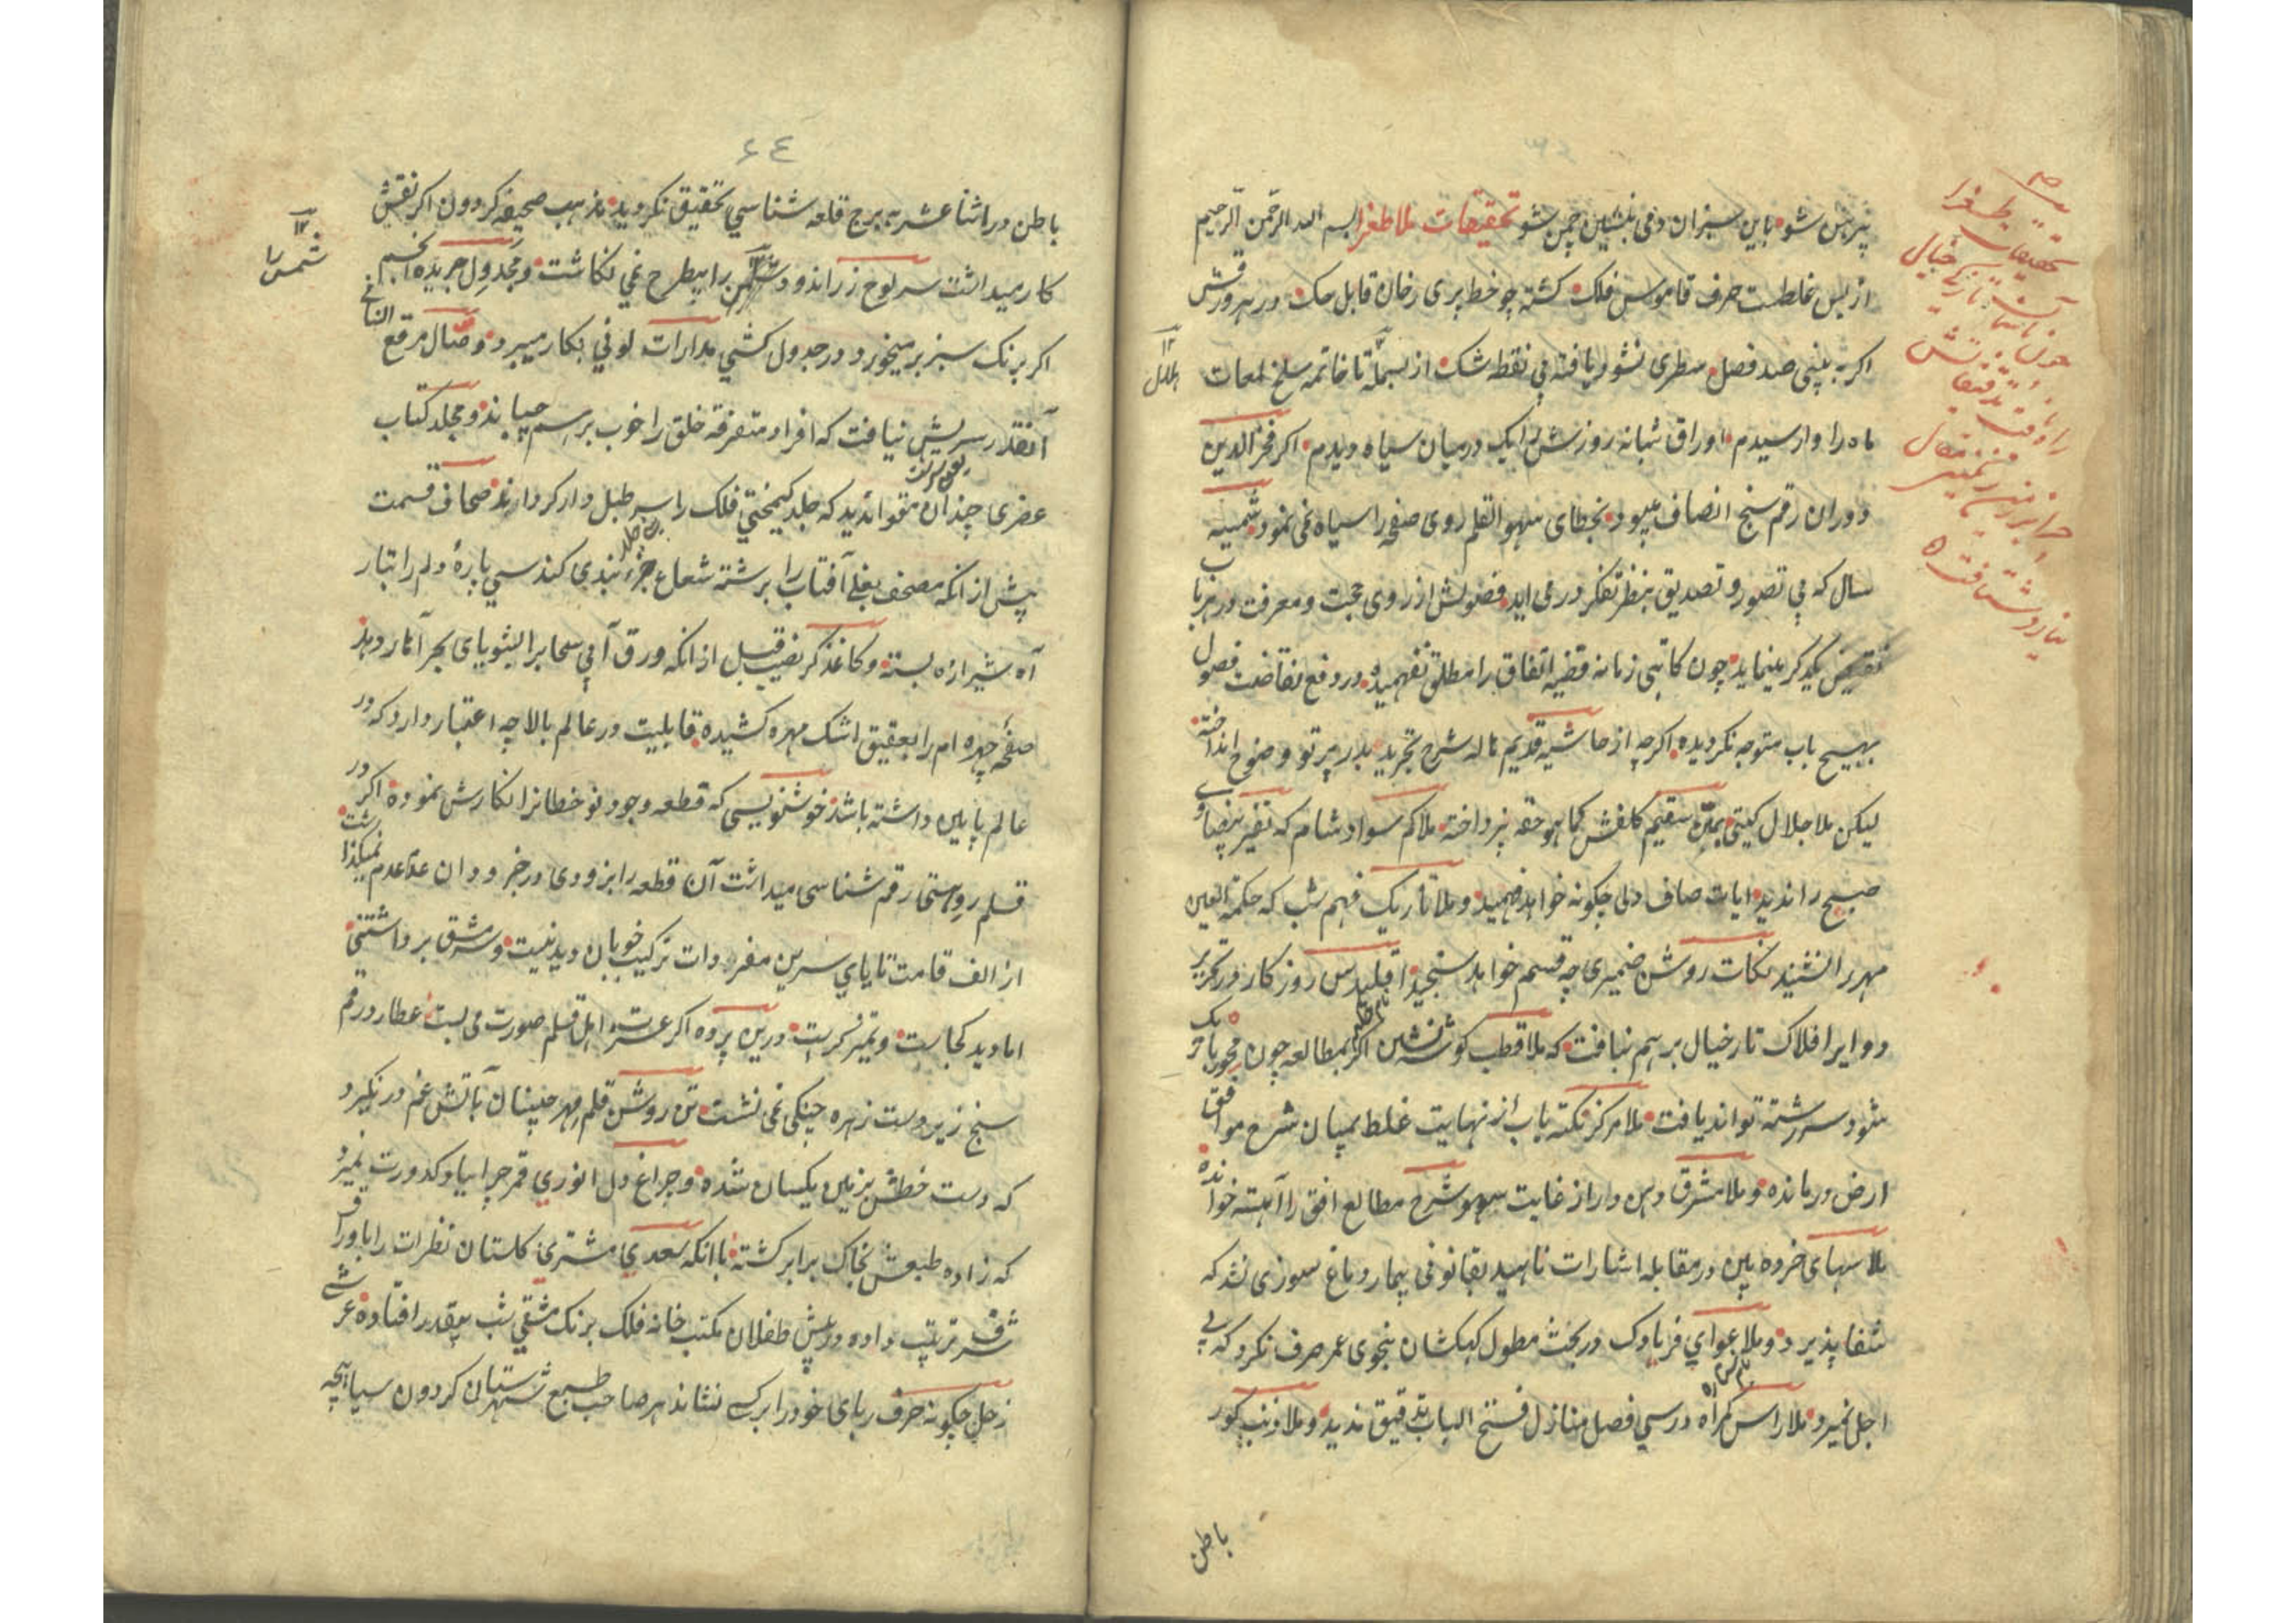 پیرهن شو باین سبزان دمی بنشین چمن شو تحقیقات ملا طغرا بسم الله الرحمن الرحیم
از بس غلطست حرف قاموس فلک کشته چو خط پری رخان قابل حک در هر ورقش
اگر به بینی صد فصل سطری نشود یافته بی نقطه شک از بسمله تا خاتمه سلخ لمعات
ماه را وارسیدم اوراق شبانه روزش را یک درمیان سیاه دیدم اکر فخر الدین
دوران رقم سنج انصاف میبود بخطای سهو القلم روی صفحه را سیاه نمی نمود شمسیه
سال که بی تصور و تصدیق بنظر تفکر درمی اید فصولش از روی حجت و معرفت در هر باب
نقیض یکدکر مینماید چون کاتبی زمانه قضیه اتفاق را مطلق نفهمیده در رفع تناقضت فصول
بهیچ باب متوجه نکردیده اکرچه از حاشیه قدیم هاله شرح تجرید بدر پرتو وضوح انداخته
لیکن ملا جلال کیتی بمتن سقیم کلفش کما هو حقه نپرداخته ملا کم سواد شام که تفسیر بیضاوی
صبح را ندید ایات صاف دلی چکونه خواهد فهمید و ملا تاریک فهم شب که حکمة العین
مهر را نشنید نکات روشن ضمیری چه قسم خواهد سنجید اقلیدس روزکار در تحریر
دوایر افلاک تار خیال بر هم نبافت که ملا قطب کوشه نشین اکر بمطالعه چون محور باریک
شود سر رشته تواند یافت ملا مرکز نکته یاب از نهایت غلط بمیان شرح مواقف
ارض درمانده و ملا مشرق دهن دار از غایت سهو شرح مطالع افق را آهسته خوانده
ملا سهای خرده بین در مقابله اشارات ناهید بقانونی بیمار دماغ سوزی نشد که
شفا پذیرد و ملا عوای فریادک در بحث مطول کهکشان بنحوی عمر صرف نکرد که بی
اجل نمیرد ملا راس کمراه درسی فصل منازل فتح الباب تدقیق ندید و ملا ذنب کور
باطن
هلال
۶۴
باطن در اثنا عشریه برج قلعه شناسی تحقیق نکردید مذهب صحیفه کردون اکر نقش
کار میداشت سر لوح زر اندود شمس را بیطرح نمی نکاشت و مجدول جریده انجم
اکر برنک سبز برمیخورد در جدول کشی مدارات لونی بکار میبرد وصال مرقع
آنقدر سریش نیافت که افراد متفرقه خلق را خوب بر هم چپاند و مجلد کتاب
عنصری چندان مقوا ندید که جلد کیمختی فلک را سر طبل وار کرداند صحاف قسمت
پیش از انکه مصحف بغلی آفتاب را برشته شعاع جزء بندی کند سی پاره دلم را بتار
آه شیرازه بسته و کاغذکر نصیب قبل از انکه ورق آبی سحاب را بیثویای بحر آثار دهد
صفحه چهره ام را بعقیق اشک مهره کشیده قابلیت در عالم بالا چه اعتبار دارد که در
عالم پایین داشته باشد خوشنویسی که قطعه وجود نو خطانرا نکارش نموده اکر در
قلم روستی رقم شناسی میداشت آن قطعه را بزودی در خردان عدم نمیکذاشت
از الف قامت تا یای سرین مفردات ترکیب خوبان دیدنیست و سرمشق برداشتنی
اما دید کجاست و تمیز کراست درین پرده اکر عسرت اهل قلم صورت می بست عطارد رقم
سنج زیر دست زهره چنکی نمی نشست تن روشن قلم مهر چسان آتش غم در نکیرد
که دست خطش بزمین یکسان شده و چراغ دل انوری قمر چرا بیاد کدورت نمیرد
که زاده طبعش بخاک برابر کشته باانکه سعدی مشتری کلستان نظرات را باوراق
شرف ترتیب داده در پیش طفلان مکتب خانه فلک برنک مشقی شب بیقدر افتاده عرشی
زحل چکونه حرف ربای خود را برکسی نشاند هر صاحب طبع شهرستان کردون سیاپیچه
شمس را